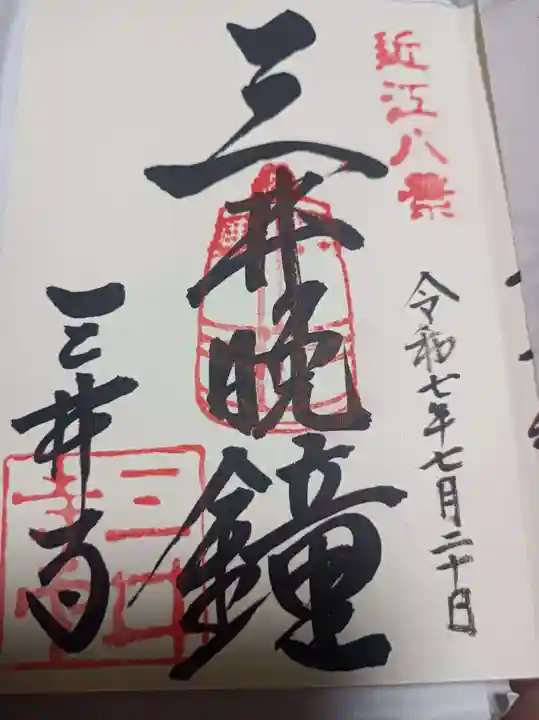 近江八景
令和七年七月二十日
三井晩鐘
三井寺